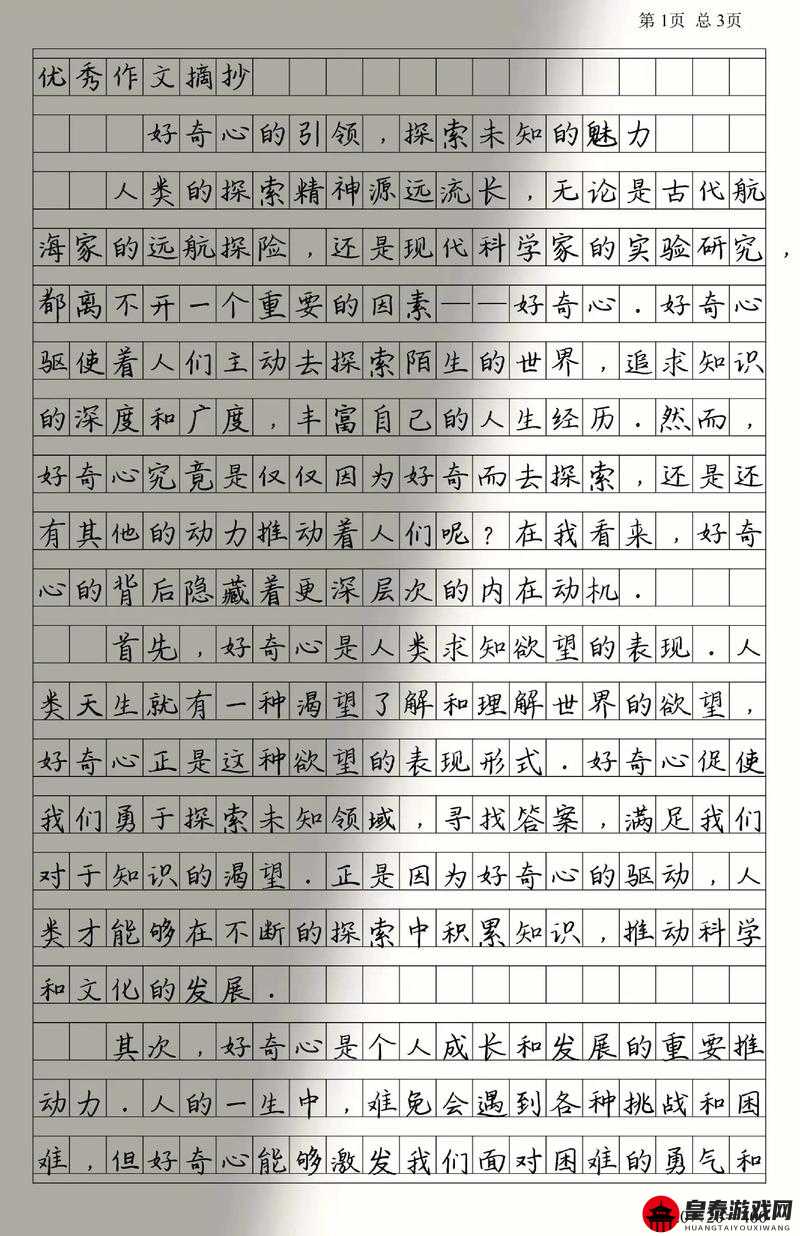 第1页 总3页
优秀作文摘抄
好奇心的引领，探索未知的魅力
人类的探索精神源远流长，无论是古代航
海家的远航探险，还是现代科学家的实验研究，
都离不开一个重要的因素——好奇心．好奇心
驱使着人们主动去探索陌生的世界，追求知识
的深度和广度，丰富自己的人生经历．然而，
好奇心究竟是仅仅因为好奇而去探索，还是还
有其他的动力推动着人们呢？在我看来，好奇
心的背后隐藏着更深层次的内在动机．
首先，好奇心是人类求知欲望的表现．人
类天生就有一种渴望了解和理解世界的欲望，
好奇心正是这种欲望的表现形式．好奇心促使
我们勇于探索未知领域，寻找答案，满足我们
对于知识的渴望．正是因为好奇心的驱动，人
类才能够在不断的探索中积累知识，推动科学
和文化的发展．
其次，好奇心是个人成长和发展的重要推
动力．人的一生中，难免会遇到各种挑战和困
难，但好奇心能够激发我们面对困难的勇气和
皇泰游戏网
HUANGTAIYOUXIWANG